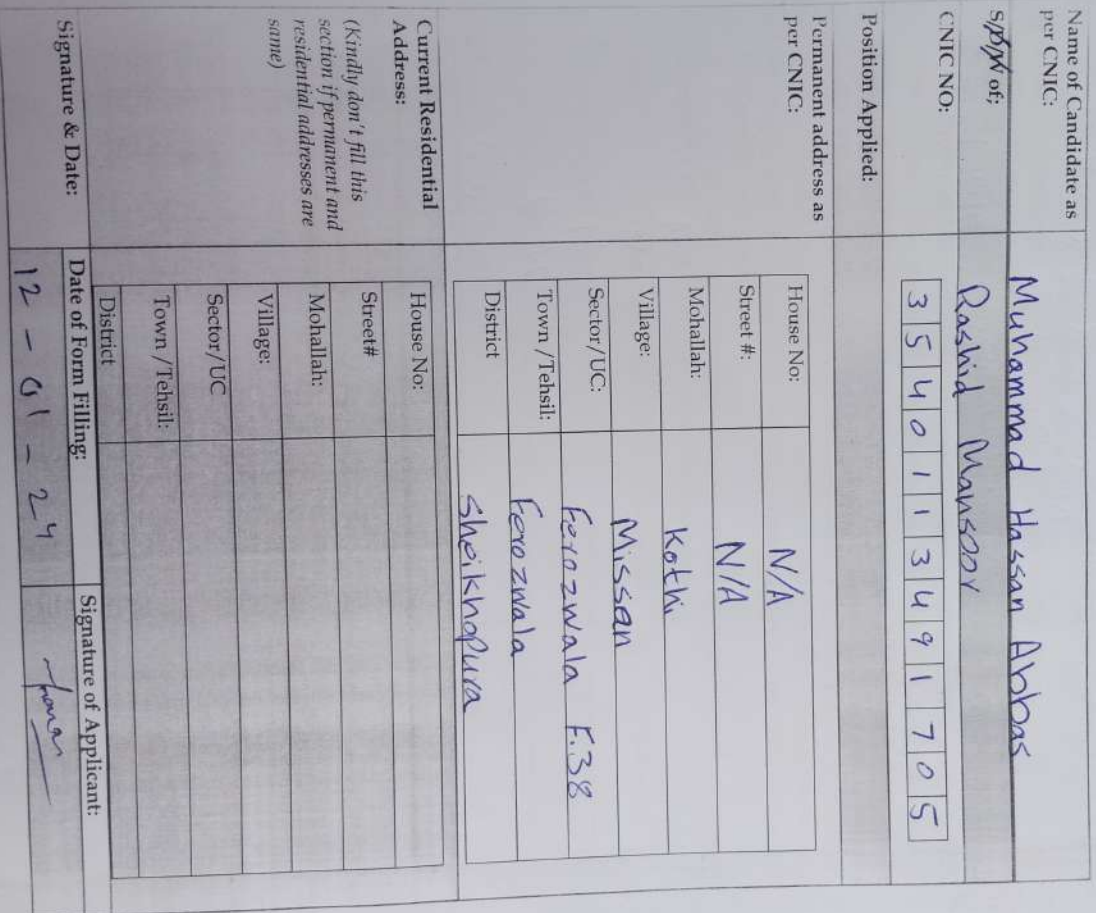 Name of Candidate as per CNIC: Muhammad Hassan Abbas
S/D/W of; Rashid Mansoor
CNIC NO: 3 5 4 0 1 1 3 4 9 1 7 0 5
Position Applied:
Permanent address as per CNIC:
House No: N/A
Street #: N/A
Mohallah: Kothi
Village: Missan
Sector/UC: Ferozwala F.38
Town /Tehsil: Ferozwala
District Sheikhopura
Current Residential Address:
(Kindly don't fill this section if permanent and residential addresses are same)
House No:
Street#
Mohallah:
Village:
Sector/UC
Town /Tehsil:
District
Signature & Date:
Date of Form Filling: Signature of Applicant:
12 - 01 - 24